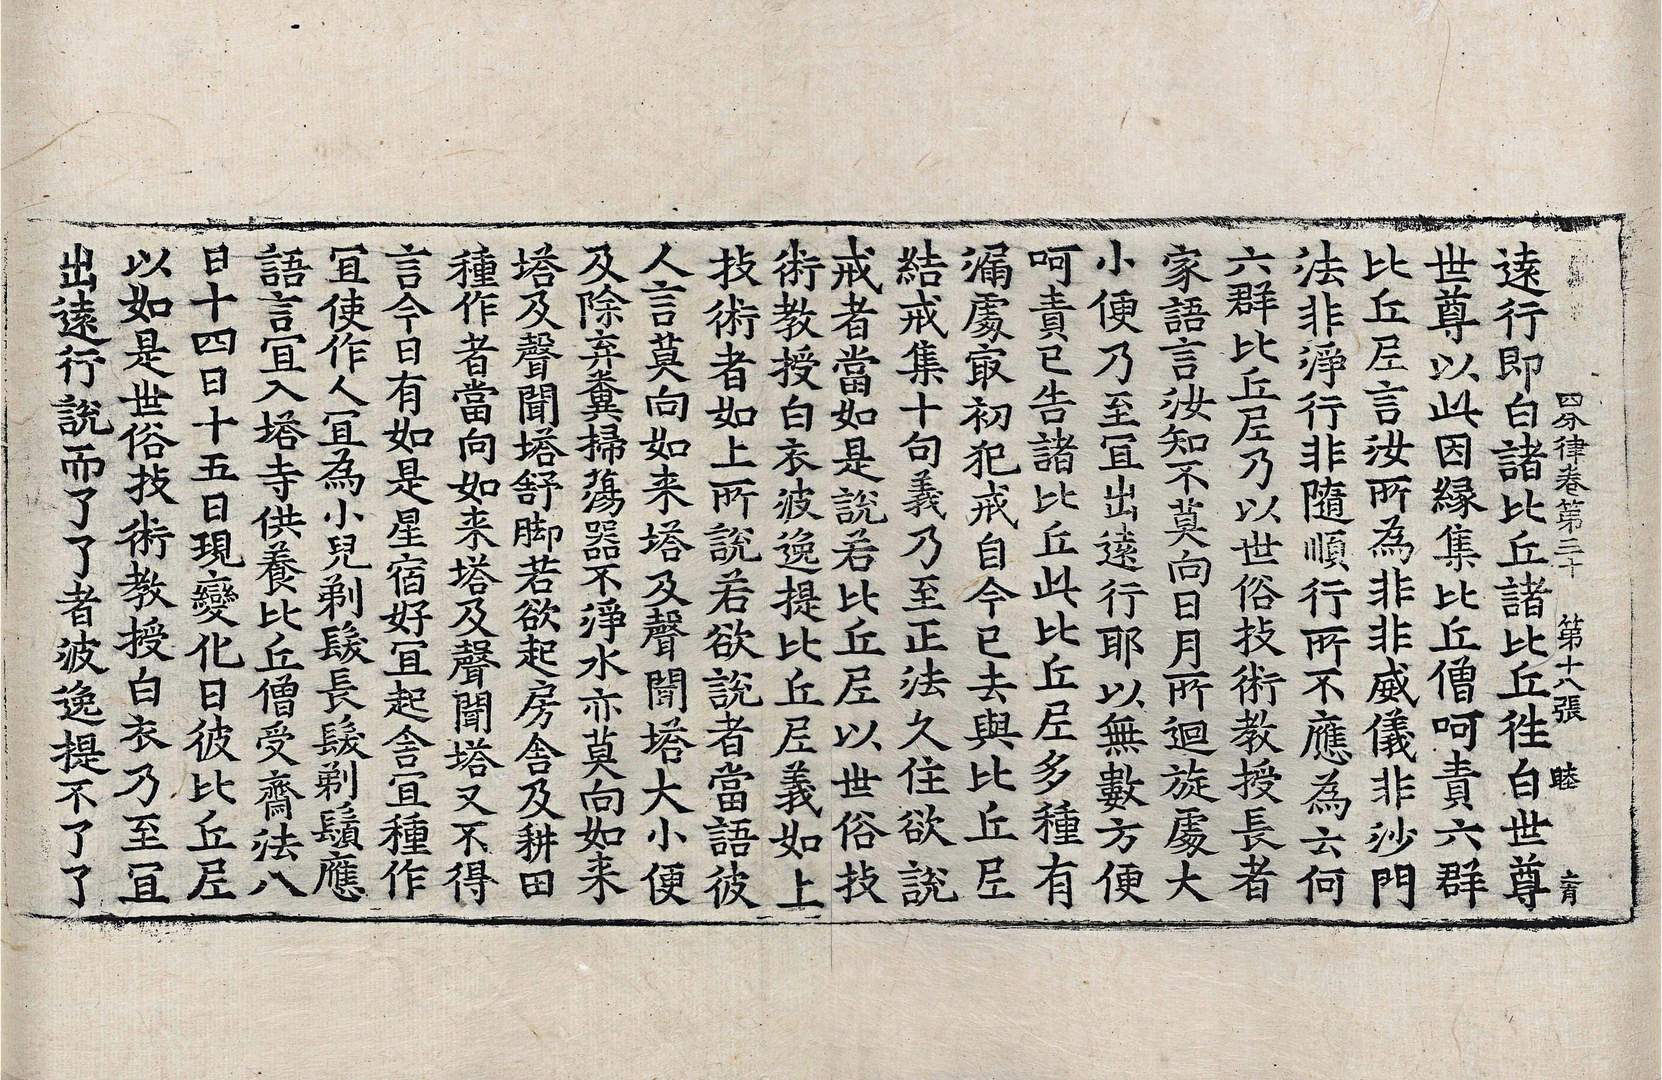 四分律卷第三十　第十八張　睦　六育
遠行即白諸比丘諸比丘徃白世尊
世尊以此因緣集比丘僧呵責六群
比丘尼言汝所為非非威儀非沙門
法非淨行非隨順行所不應為云何
六群比丘尼乃以世俗技術教授長者
家語言汝知不莫向日月所迴旋處大
小便乃至冝出遠行耶以無數方便
呵責已告諸比丘此比丘尼多種有
漏處㝡初犯戒自今已去與比丘尼
結戒集十句義乃至正法久住欲說
戒者當如是說若比丘尼以世俗技
術教授白衣波逸提比丘尼義如上
技術者如上所說若欲說者當語彼
人言莫向如来塔及聲聞塔大小便
及除弃糞掃蕩器不淨水亦莫向如来
塔及聲聞塔舒脚若欲起房舍及耕田
種作者當向如来塔及聲聞塔又不得
言今日有如是星宿好冝起舍冝種作
冝使作人冝為小兒剃髮長髮剃鬚應
語言冝入塔寺供養比丘僧受齋法八
日十四日十五日現變化日彼比丘尼
以如是世俗技術教授白衣乃至冝
出遠行說而了了者波逸提不了了